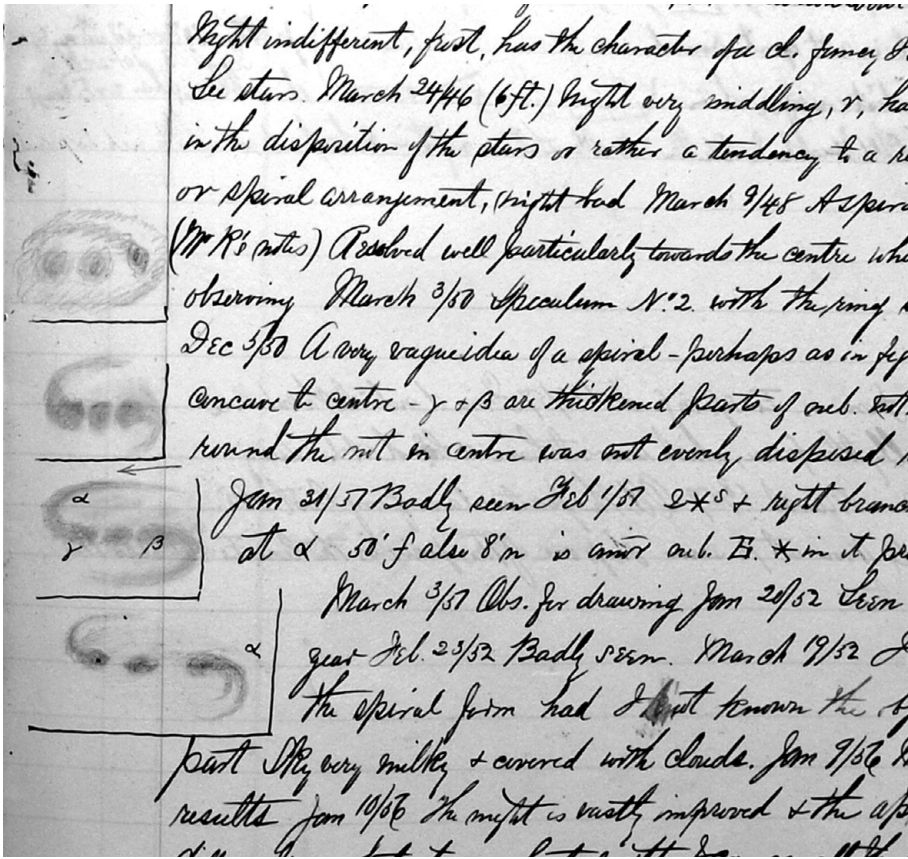 Night indifferent, frost, has the character of a cl. fancy I
See stars. March 24/46 (6 ft.) Night very middling, r, ha
in the disposition of the stars or rather a tendency to a
or spiral arrangement, night bad March 9/48 A spira
(Mr R's notes) Resolved well particularly towards the centre whe
observing March 3/50 Speculum No. 2. with the ring
Dec 5/50 A very vague idea of a spiral - perhaps as in fig
concave to centre - γ + β are thickened parts of neb.
round the nt in centre was not evenly disposed
α
γ β
Jan 31/51 Badly seen Feb 1/51 2 *s + right branc
at α 50' f also 8' n is anor neb. * in it
March 3/51 Obs. for drawing Jan 20/52 Seen
α
year Feb. 23/52 Badly seen. March 19/52 I
the spiral form had I not known the
part Sky very milky + covered with clouds. Jan 9/56
results Jan 10/56 The night is vastly improved + the ap